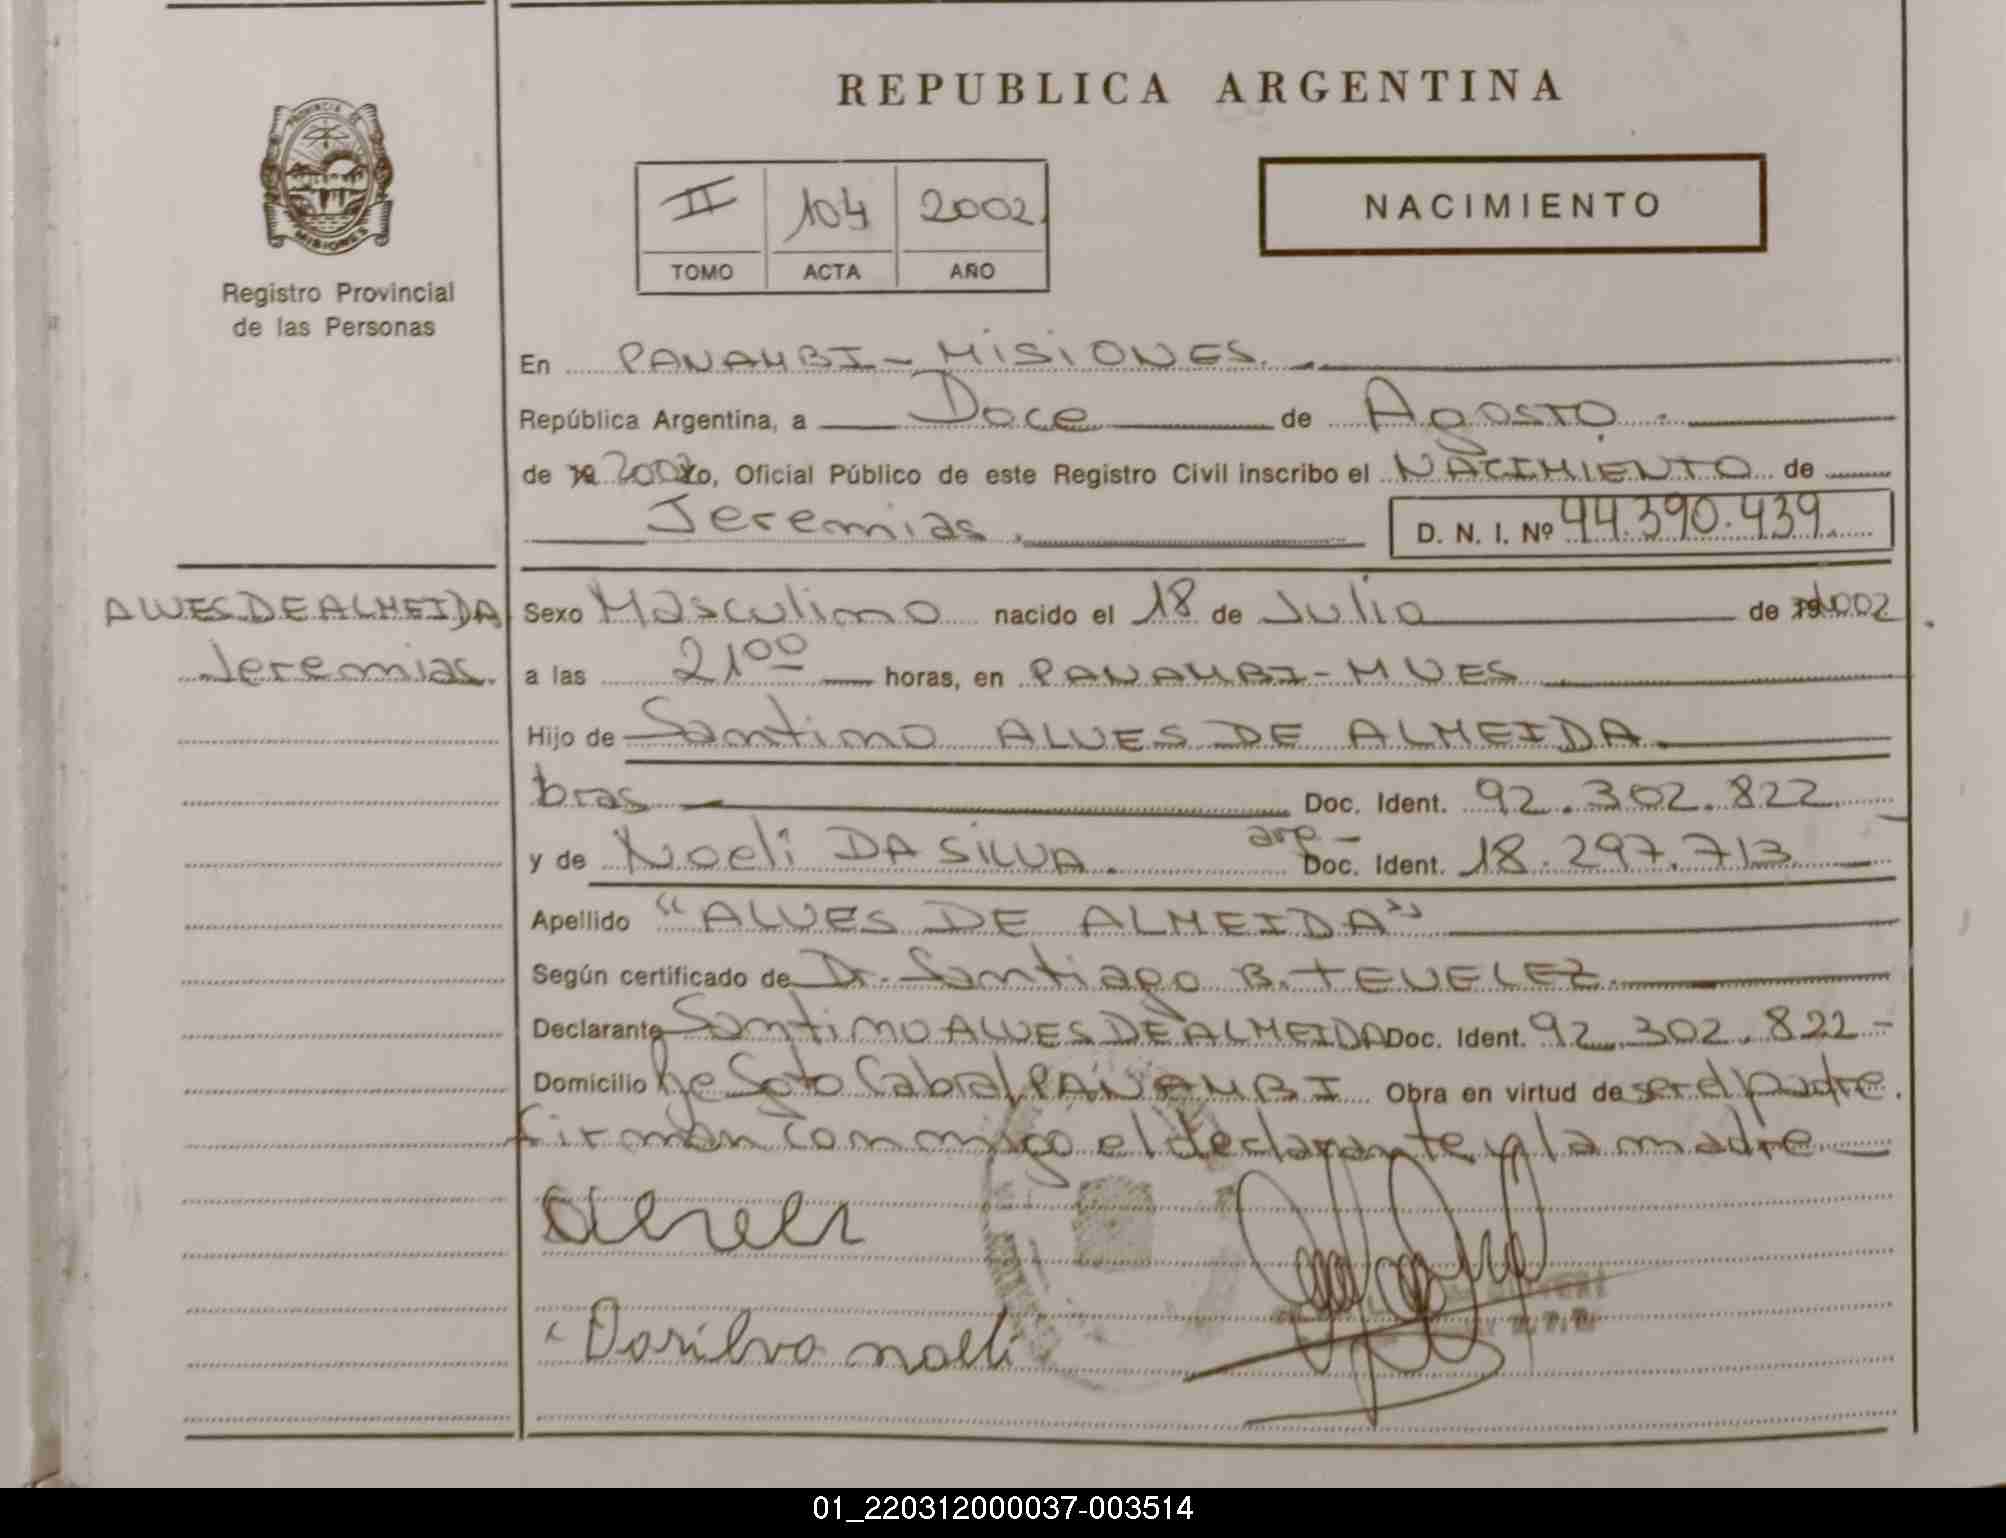 REPUBLICA ARGENTINA
PROVINCIA DE
MISIONES
Registro Provincial
de las Personas
II 104 2002
TOMO ACTA AÑO
NACIMIENTO
En PANAMBI - MISIONES.
República Argentina, a Doce de Agosto
de 19 2002 Yo, Oficial Público de este Registro Civil inscribo el NACIMIENTO de
Jeremias. D. N. I. Nº 44.390.439.
ALVES DE ALMEIDA
Jeremias.
Sexo Masculino nacido el 18 de Julio de 19 2002
a las 21 00 horas, en PANAMBI - MNES
Hijo de Santino ALVES DE ALMEIDA.
bras Doc. Ident. 92.302.822
y de Noeli DA SILVA. arg - Doc. Ident. 18.297.713
Apellido "ALVES DE ALMEIDA"
Según certificado de Dr. Santiago B. TEVELEZ
Declarante Santino ALVES DE ALMEIDA Doc. Ident. 92.302.822 -
Domicilio Soto Cabral PANAMBI Obra en virtud de ser el padre.
firman conmigo el declarante y la madre
Dasilva noeli
01_220312000037-003514